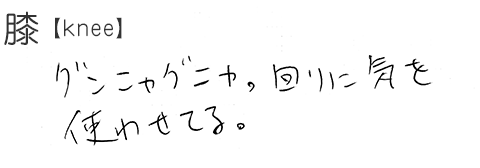 膝【knee】
グンニャグニャ。回りに気を
使わせてる。